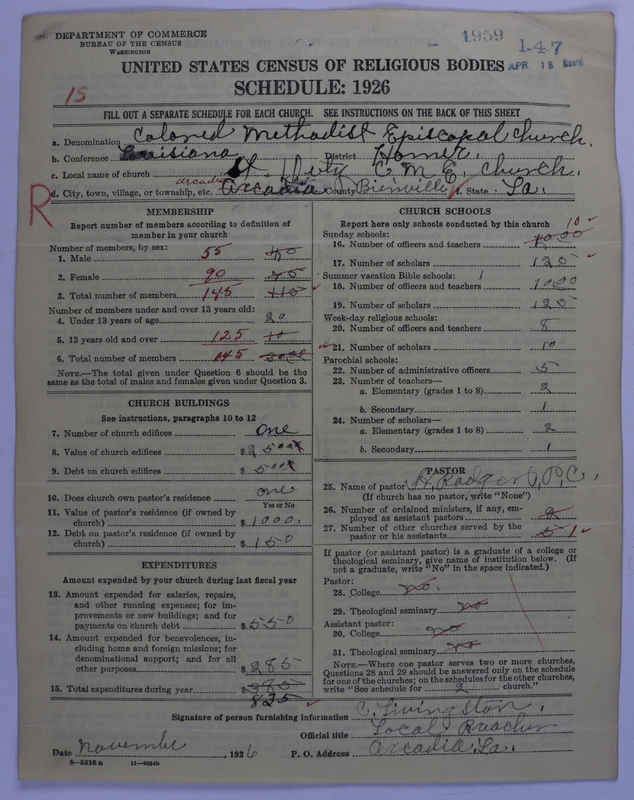 DEPARTMENT OF COMMERCE
BUREAU OF THE CENSUS
WASHINGTON
1959
1-4-7
APR 18
UNITED STATES CENSUS OF RELIGIOUS BODIES
SCHEDULE: 1926
15
FILL OUT A SEPARATE SCHEDULE FOR EACH CHURCH. SEE INSTRUCTIONS ON THE BACK OF THIS SHEET
a. Denomination Colored Methodist Episcopal Church.
b. Conference Louisiana District Homer.
c. Local name of church St. C. M. E. Church.
arcadia
d. City, town, village, or township, etc. Arcadia County Bienville State La.
R
MEMBERSHIP
Report number of members according to definition of
member in your church
Number of members, by sex:
1. Male 55 40
2. Female 90 75
3. Total number of members 145 115
Number of members under and over 13 years old:
4. Under 13 years of age 20
5. 13 years old and over 125 10
6. Total number of members 145
NOTE.—The total given under Question 6 should be
the same as the total of males and females given under Question 3.
CHURCH BUILDINGS
See instructions, paragraphs 10 to 12
7. Number of church edifices one
8. Value of church edifices $ 2500
9. Debt on church edifices $ 500
10. Does church own pastor's residence one
Yes or No
11. Value of pastor's residence (if owned by
church) $ 1000.
12. Debt on pastor's residence (if owned by
church) $ 150
EXPENDITURES
Amount expended by your church during last fiscal year
13. Amount expended for salaries, repairs,
and other running expenses; for im-
provements or new buildings; and for
payments on church debt $ 550
14. Amount expended for benevolences, in-
cluding home and foreign missions; for
denominational support; and for all
other purposes $ 285
15. Total expenditures during year $ 385
835
CHURCH SCHOOLS
Report here only schools conducted by this church
Sunday schools: 10
16. Number of officers and teachers 1000
17. Number of scholars 125
Summer vacation Bible schools: 1
18. Number of officers and teachers 1000
19. Number of scholars 125
Week-day religious schools:
20. Number of officers and teachers 8
21. Number of scholars 10
Parochial schools:
22. Number of administrative officers 5
23. Number of teachers—
a. Elementary (grades 1 to 8) 2
b. Secondary 1
24. Number of scholars—
a. Elementary (grades 1 to 8) 2
b. Secondary 1
PASTOR
25. Name of pastor H. Rodgers, P. C.
(If church has no pastor, write "None")
26. Number of ordained ministers, if any, em-
ployed as assistant pastors 2
27. Number of other churches served by the
pastor or his assistants 5 1
If pastor (or assistant pastor) is a graduate of a college or
theological seminary, give name of institution below. (If
not a graduate, write "No" in the space indicated.)
Pastor:
28. College no.
29. Theological seminary no
Assistant pastor:
30. College no
31. Theological seminary no
NOTE.—Where one pastor serves two or more churches,
Questions 28 and 29 should be answered only on the schedule
for one of the churches; on the schedules for the other churches,
write "See schedule for 2 church."
Signature of person furnishing information C. Livingston.
Official title Local Preacher
Date November, 1926 P. O. Address Arcadia La.
8-5518 a 11-9064b